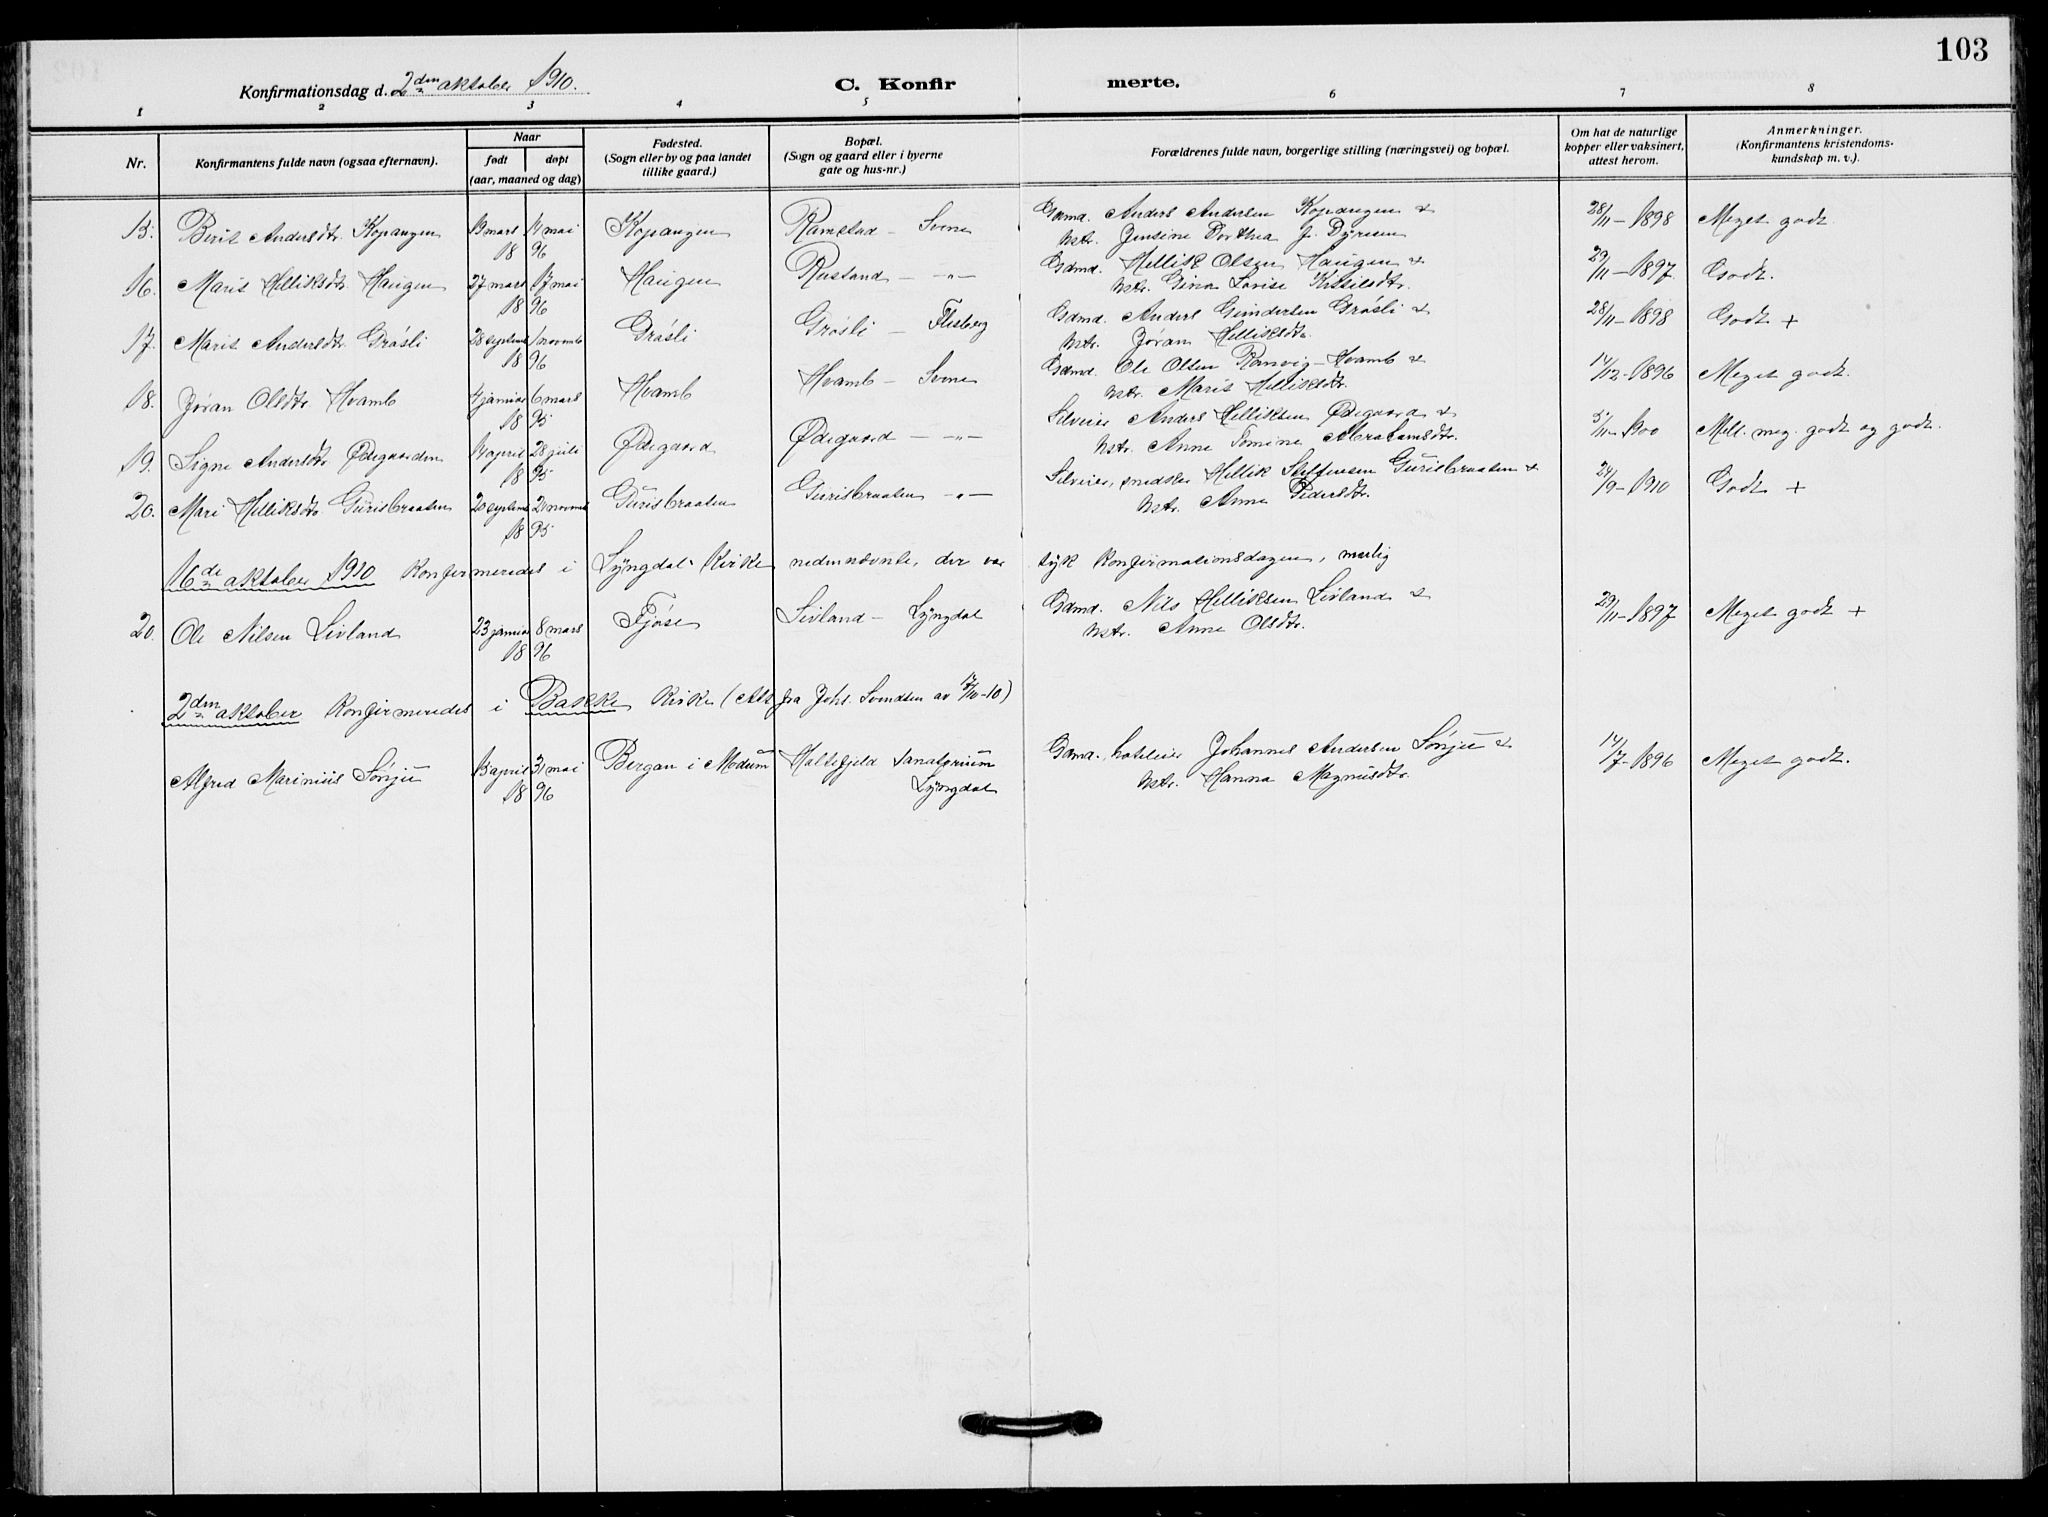 103
Konfirmationsdag d. 2den oktober 1910.
C. Konfirmerte.
1 2 3 4 5 6 7 8
Nr.
Konfirmantens fulde navn (ogsaa efternavn).
Naar
født døpt
(aar, maaned og dag)
Fødested.
(Sogn eller by og paa landet
tillike gaard.)
Bopæl.
(Sogn og gaard eller i byerne
gate og hus-nr.)
Forældrenes fulde navn, borgerlige stilling (næringsvei) og bopæl.
Om hat de naturlige
kopper eller vaksinert,
attest herom.
Anmerkninger.
(Konfirmantens kristendoms-
kundskap m. v.).
15. Berit Andersdtr. Kopangen 19 mars 17 mai Kopangen Ramstad - Svene Gdmd. Anders Andersen Kopangen & 28/11-1898 Meget godt
18 96 hstr. Jensine Dorthea J. Dyresen
16. Marit Helliksdtr. Haugen 27 mars 17 mai Haugen Rustand - -"- Gdmd. Hellik Olsen Haugen & 29/11-1897 Godt.
18 96 hstr. Gina Lovise Kittilsdtr.
17. Marit Andersdtr. Gråsli 28 septemb 1 novemb Gråsli Gråsli - Flesberg Gdmd. Anders Gundersen Gråsli & 28/11-1898 Godt +
18 96 hstr. Jøran Helliksdtr.
18. Jøran Olsdtr. Hvamb 4 januar 6 mars Hvamb Hvamb - Svene Gdmd. Ole Olsen Ranvig-Hvamb & 17/12-1896 Meget godt.
18 95 hstr. Marit Helliksdtr.
19. Signe Andersdtr. Ødegaarden 14 april 28 juli Ødegaard Ødegaard - -"- Selveier Anders Helliksen Ødegaard & 5/11-1900 Mell. meg. godt og godt.
18 95 hstr. Anne Tomine Abrahamsdtr.
20. Mari Helliksdtr. Gurisbraaten 20 septemb 21 novemb Gurisbraaten Gurisbraaten -"- Selveier, snedker Hellik Steffensen Gurisbraaten & 24/9-1910 Godt +
18 95 hstr. Anne Pedersdtr.
16de oktober 1910 konfirmeredes i Lyngdal Kirke nedennævnte, der var syk konfirmationsdagen, nemlig
20. Ole Nilsen Livland 23 januar 8 mars Fjøse Livland - Lyngdal Gdmd. Nils Helliksen Livland & 29/11-1897 Meget godt +
18 96 hstr. Anne Olsdtr.
2den oktober konfirmeredes i Bakke Kirke (Att. fra Johs. Svendsen av 17/10-10)
Alfred Marinius Sønju 13 april 31 mai Bergan i Modum Holtefjeld Sanatorium Gdmd., hoteleier Johannes Andersen Sønju & 14/7-1896 Meget godt.
18 96 Lyngdal hstr. Hanna Magnusdtr.